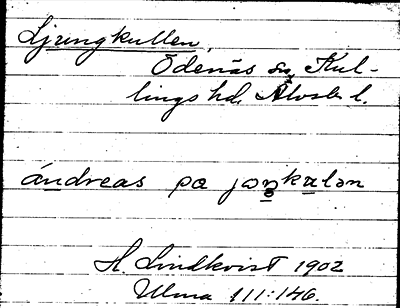 Ljungkullen,
Ödenäs sn, Kul-
lings hd, Älvsb. l.
ándreas pa joŋkɯlən
H. Lindkvist 1902
Ulma 111:146.